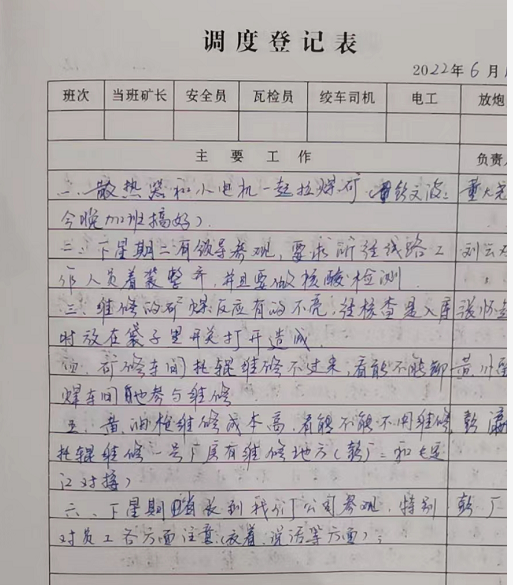 调度登记表
2022年6月1
班次 当班矿长 安全员 瓦检员 绞车司机 电工 放炮
主要工作 负责人
一、散热器和小电机一起拉煤矿
今晚加班搞好）
二、下星期二有领导参观，要求所经线路工
作人员着装整齐，并且要做核酸检测
三、维修的矿 反应有的不亮，经检查是入库
时放在袋子里开关打开造成
四、矿修车间托辊维修不过来，看能不能
焊车间 参与维修
五、黄油枪维修成本高，看能不能不用维修，
托辊维修一号厂房有维修地方
对接）
六、下星期 到我们厂公司参观，特别
对员工各方面注意（衣着、说话等方面）；